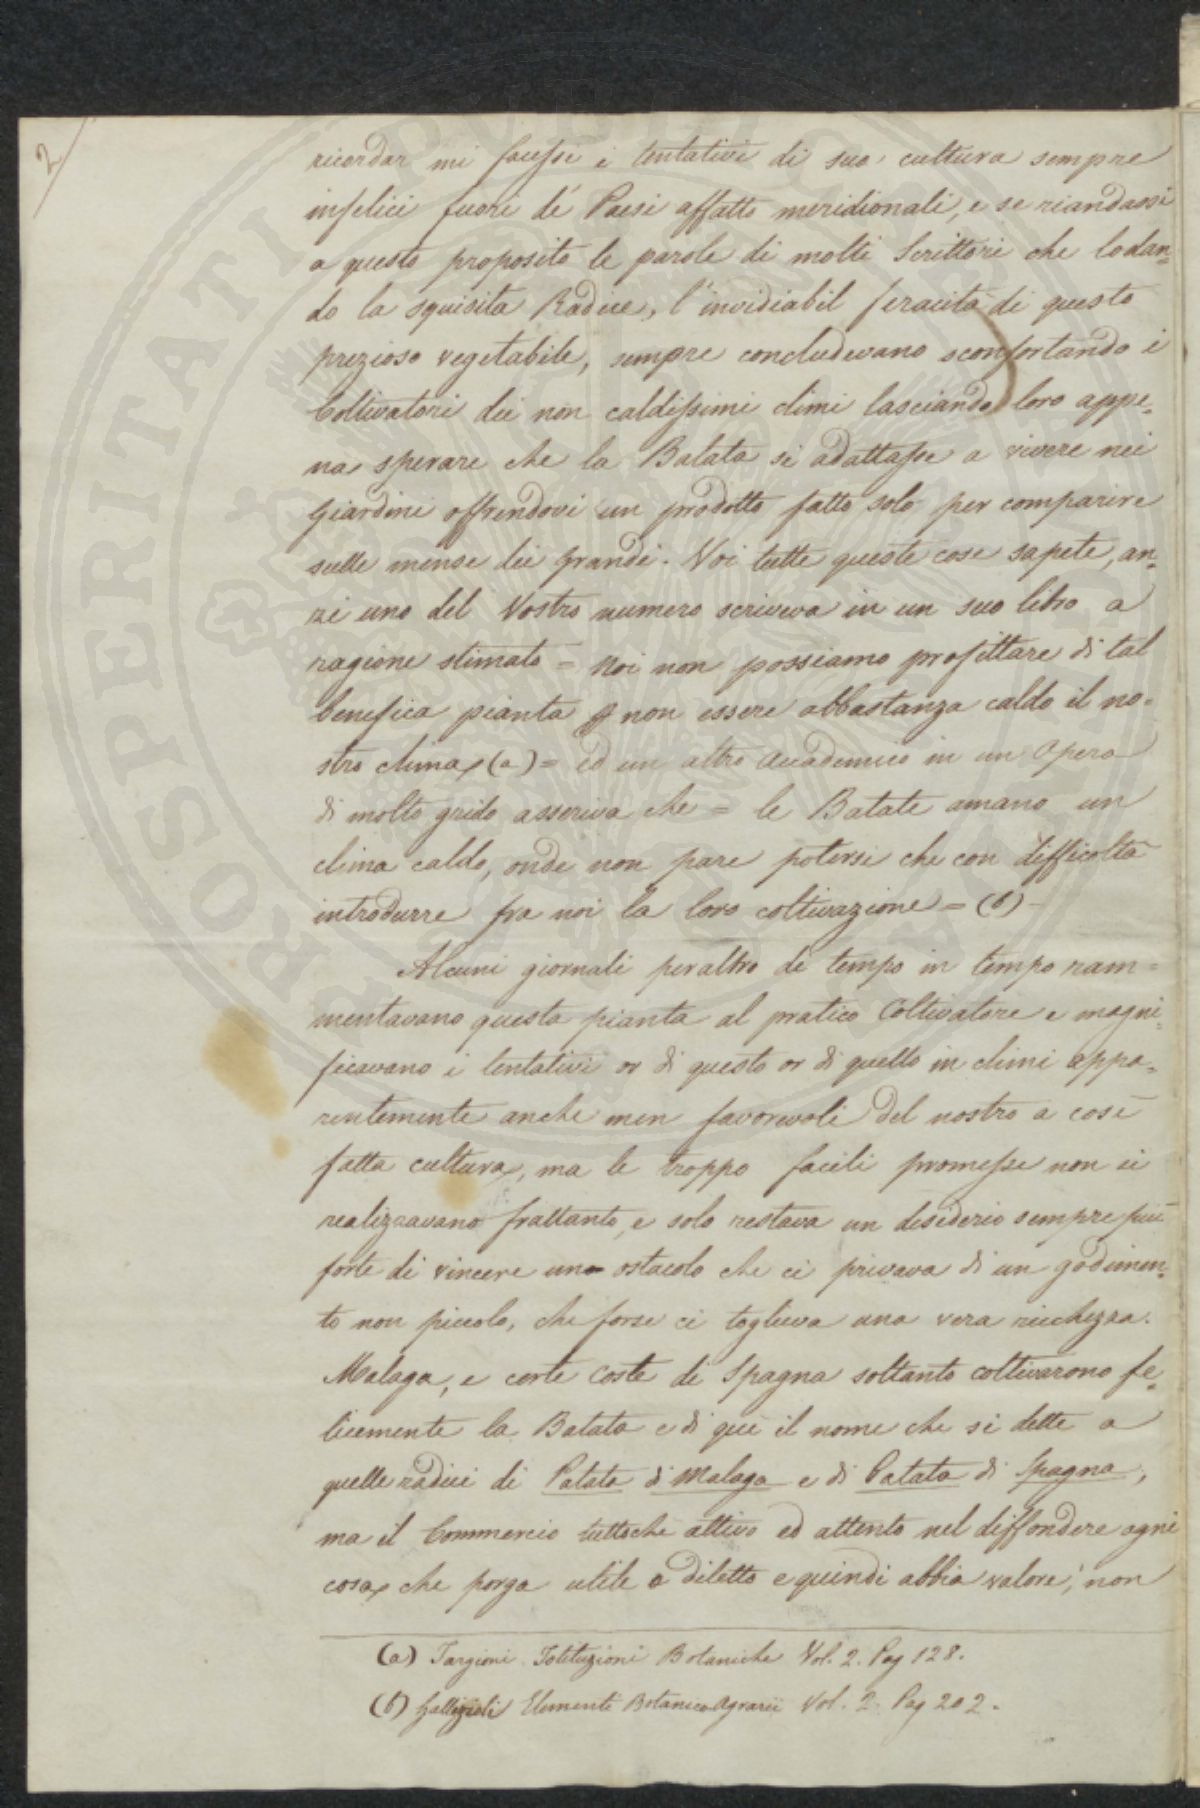 2/
ricordar mi facessi i tentativi di sua cultura sempre
infelici fuori de' Paesi affatto meridionali, e se riandassi
a questo proposito le parole di molti Scrittori che lodan=
do la squisita Radice, l'invidiabil feracità di questo
prezioso vegetabile, sempre concludevano sconfortando i
Coltivatori dei non caldissimi climi lasciando loro appe=
na sperare che la Batata si adattasse a vivere nei
Giardini offrendovi un prodotto fatto solo per comparire
sulle mense dei grandi. Voi tutte queste cose sapete, an=
zi uno del Vostro numero scriveva in un suo libro a
ragione stimato = Noi non possiamo profittare di tal
benefica pianta p non essere abbastanza caldo il no=
stro clima (a) = ed un altro Accademico in un Opera
di molto grido asseriva che = le Batate amano un
clima caldo, onde non pare potersi che con difficoltà
introdurre fra noi la loro coltivazione = (b) -
Alcuni giornali peraltro di tempo in tempo ram=
mentavano questa pianta al pratico Coltivatore e magni=
ficavano i tentativi or di questo or di quello in climi appa=
rentemente anche men favorevoli del nostro a così
fatta cultura, ma le troppo facili promesse non si
realizzavano frattanto, e solo restava un desiderio sempre più
forte di vincere uno ostacolo che ci privava di un godimen=
to non piccolo, che forse ci toglieva una vera ricchezza.
Malaga, e certe Coste di Spagna soltanto coltivarono fe=
licemente la Batata e di qui il nome che si dette a
quelle radici di Patata di Malaga e di Patata di Spagna,
ma il Commercio tuttochè attivo ed attento nel diffondere ogni
cosa che porga utile o diletto e quindi abbia valore, non
(a) Targioni Istituzioni Botaniche Vol. 2. Pag 128.
(b) Gallizioli Elementi Botanico Agrarii Vol. 2. Pag 202.
PROSPERITATI